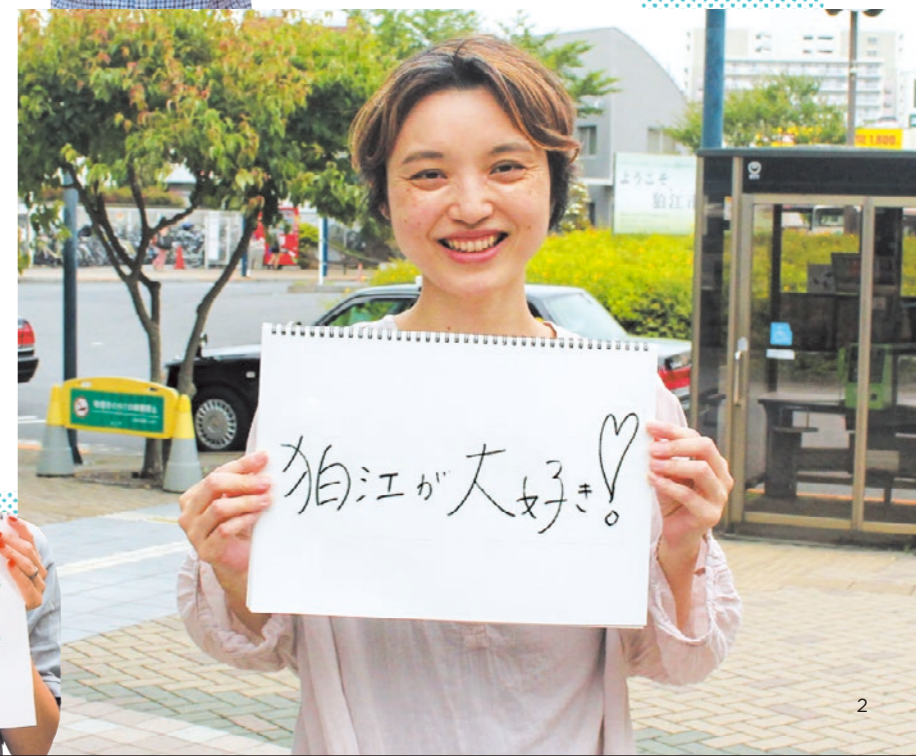 ようこそ
狛江市
狛江が大好き!
2